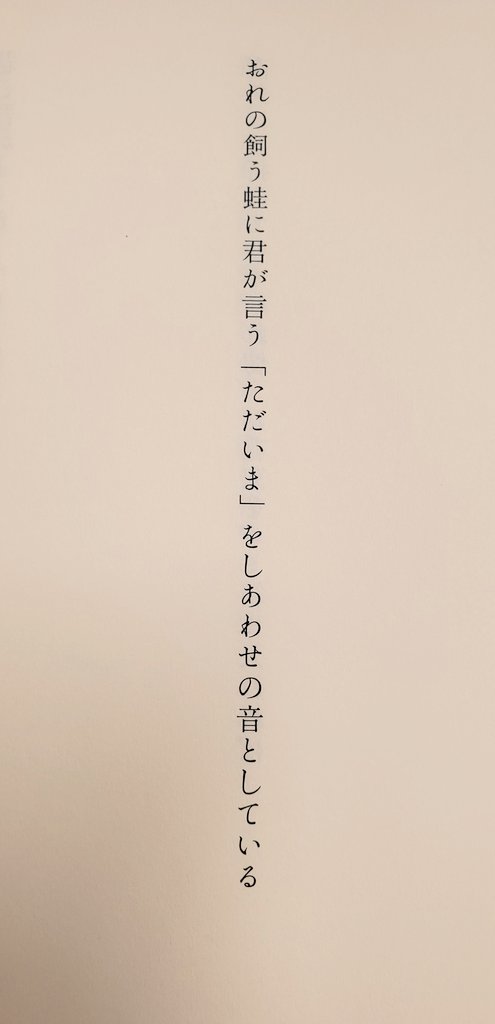 おれの飼う蛙に君が言う「ただいま」をしあわせの音としている